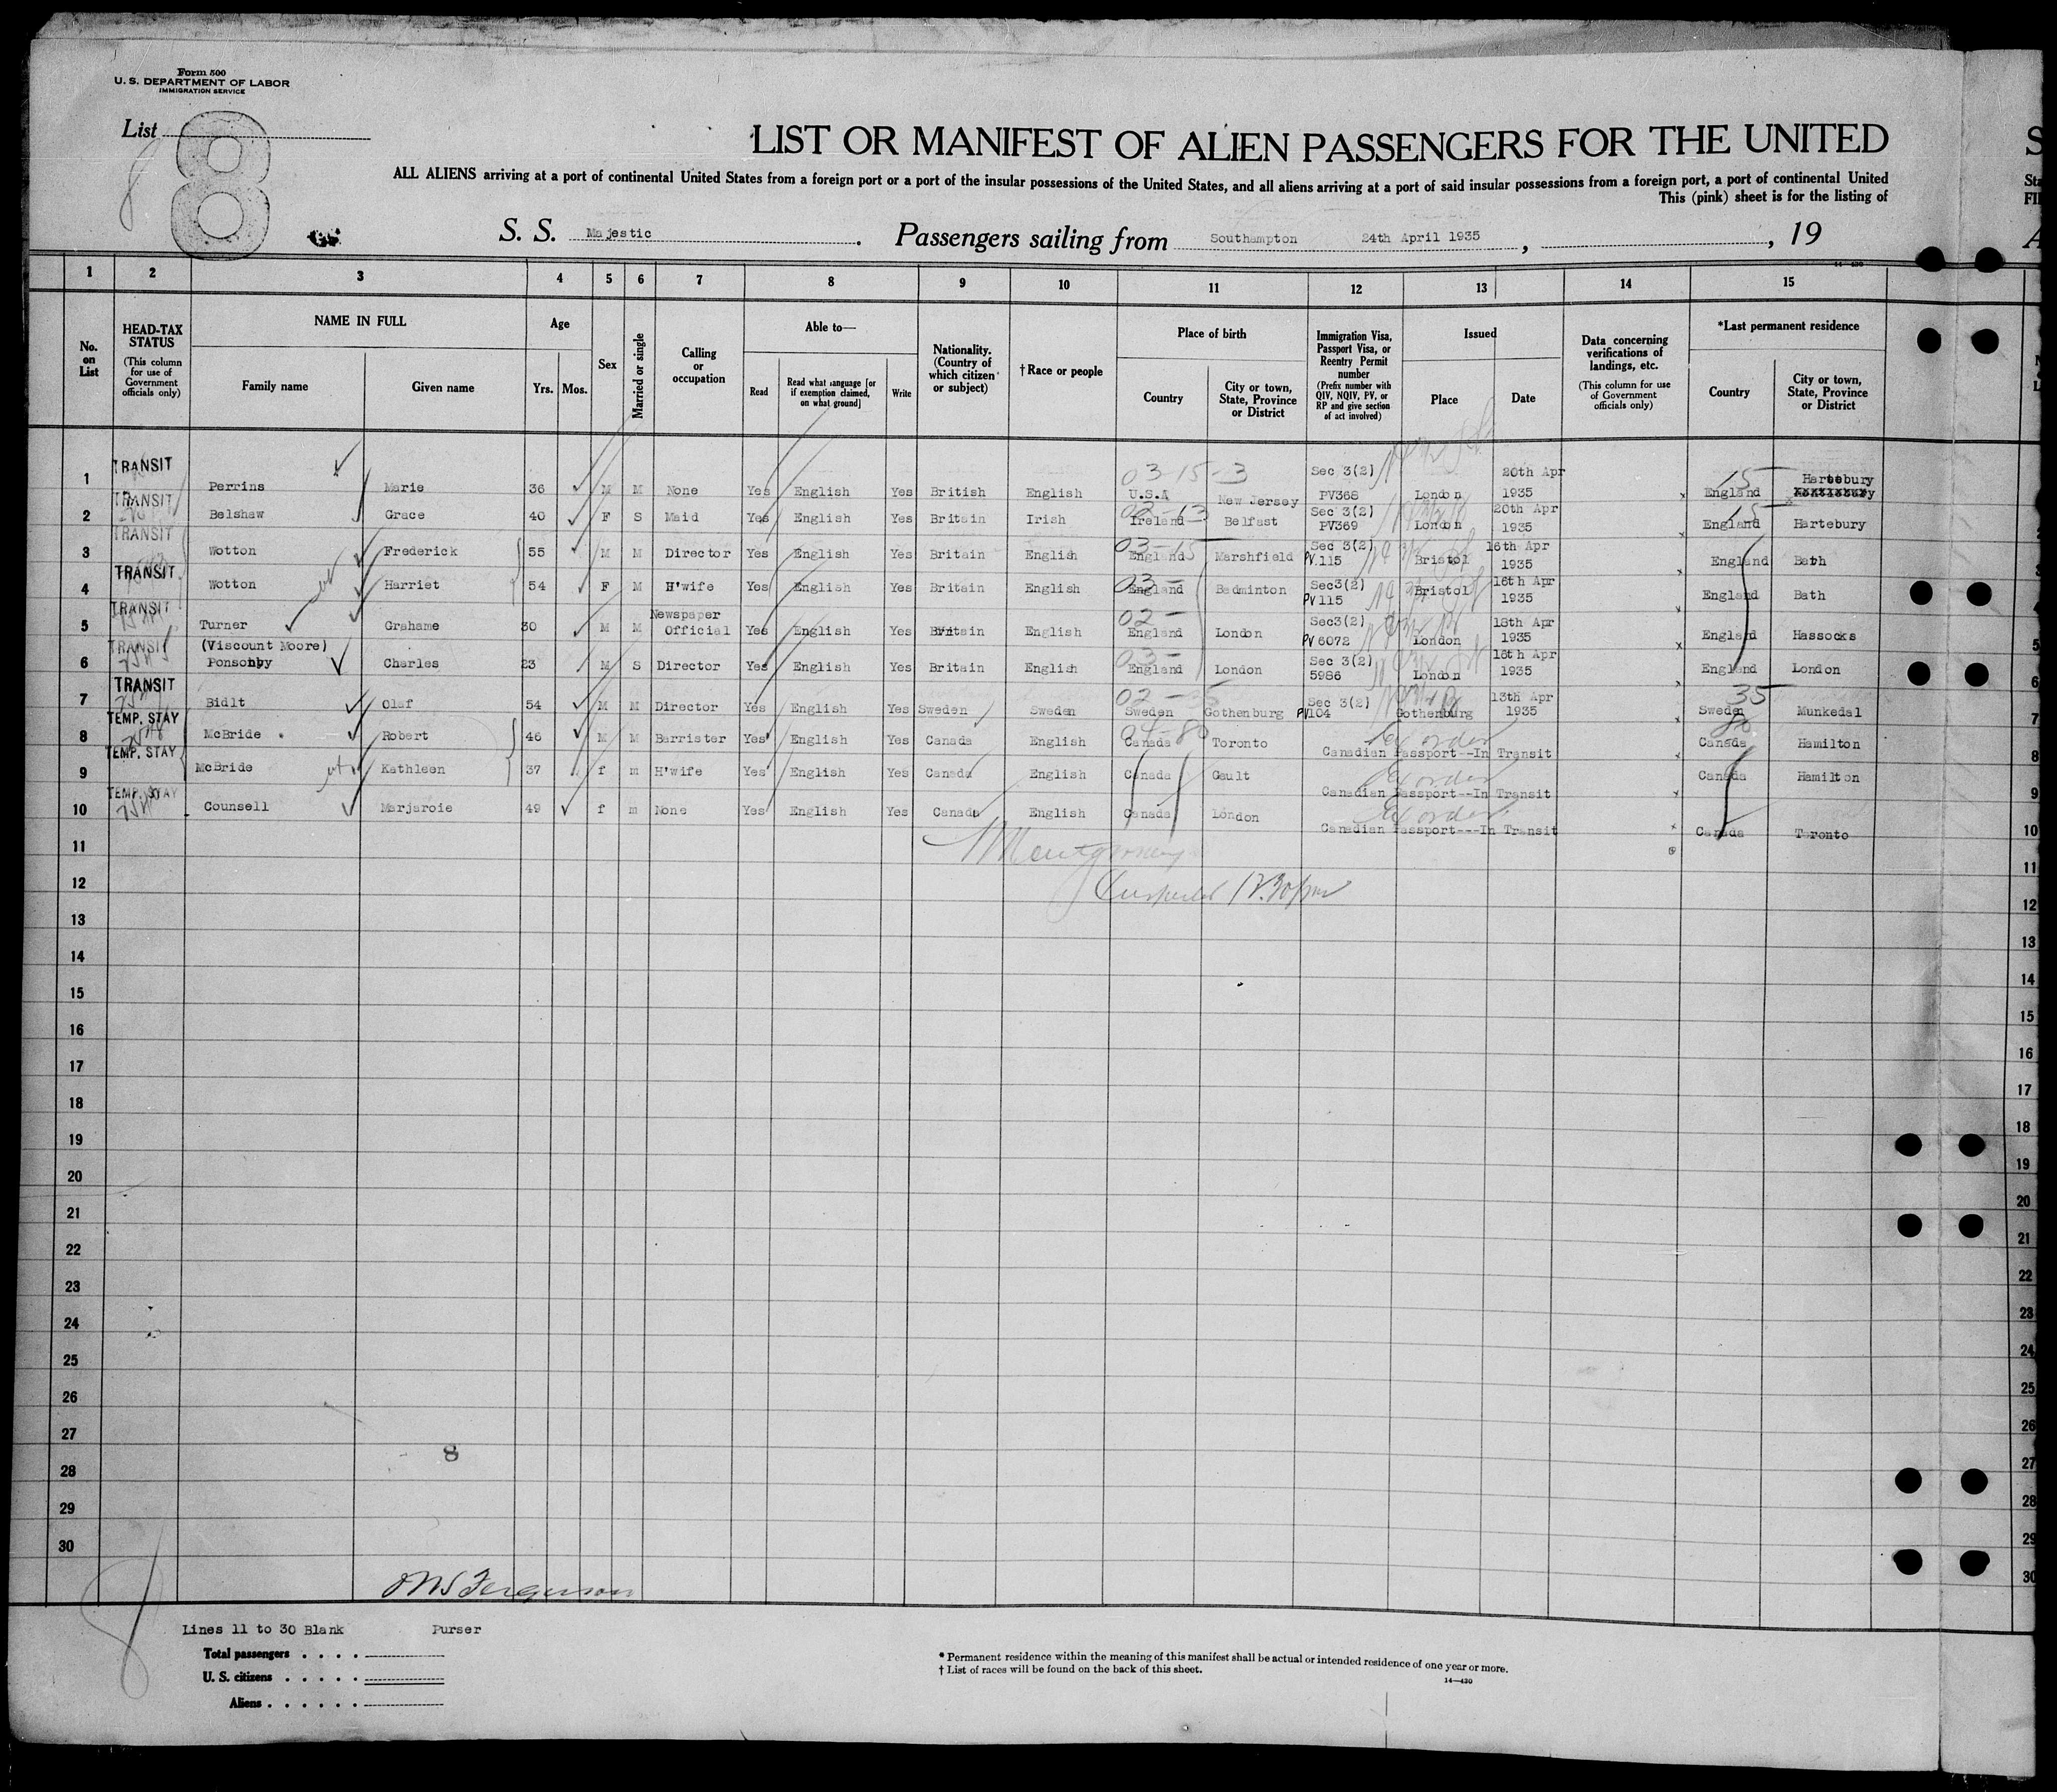 Form 500
U. S. DEPARTMENT OF LABOR
IMMIGRATION SERVICE
List
8
8
LIST OR MANIFEST OF ALIEN PASSENGERS FOR THE UNITED
S
ALL ALIENS arriving at a port of continental United States from a foreign port or a port of the insular possessions of the United States, and all aliens arriving at a port of said insular possessions from a foreign port, a port of continental United
Sta
This (pink) sheet is for the listing of
FI
S. S. Majestic. Passengers sailing from Southampton 24th April 1935, , 19
A
14-430
1 2 3 4 5 6 7 8 9 10 11 12 13 14 15
No. on List
HEAD-TAX STATUS (This column for use of Government officials only)
NAME IN FULL
Family name
Given name
Age
Yrs. Mos.
Sex
Married or single
Calling or occupation
Able to—
Read
Read what language [or if exemption claimed, on what ground]
Write
Nationality. (Country of which citizen or subject)
†Race or people
Place of birth
Country
City or town, State, Province or District
Immigration Visa, Passport Visa, or Reentry Permit number (Prefix number with QIV, NQIV, PV, or RP and give section of act involved)
Issued
Place
Date
Data concerning verifications of landings, etc. (This column for use of Government officials only)
*Last permanent residence
Country
City or town, State, Province or District
1 TRANSIT Perrins Marie 36 M M None Yes English Yes British English 03-15-3 U.S.A New Jersey Sec 3(2) PV368 London 20th Apr 1935 15 England Hartebury
2 TRANSIT Belshaw Grace 40 F S Maid Yes English Yes Britain Irish Ireland Belfast Sec 3(2) PV369 London 20th Apr 1935 15 England Hartebury
3 TRANSIT Wotton Frederick 55 M M Director Yes English Yes Britain English 03-15 England Marshfield Sec 3(2) PV.115 Bristol 16th Apr 1935 England Bath
4 TRANSIT Wotton Harriet 54 F M H'wife Yes English Yes Britain English 03- England Badminton Sec3(2) PV115 Bristol 16th Apr 1935 England Bath
5 TRANSIT Turner Grahame 30 M M Newspaper Official Yes English Yes Britain English 02- England London Sec3(2) PV 6072 London 18th Apr 1935 England Hassocks
6 TRANSIT (Viscount Moore) Ponsonby Charles 23 M S Director Yes English Yes Britain English 03- England London Sec 3(2) 5986 London 16th Apr 1935 England London
7 TRANSIT Bidlt Olaf 54 M M Director Yes English Yes Sweden Sweden 02-35 Sweden Gothenburg Sec 3(2) PV104 Gothenburg 13th Apr 1935 35 Sweden Munkedal
8 TEMP. STAY McBride Robert 46 M M Barrister Yes English Yes Canada English Canada Toronto Ex order Canadian Passport--In Transit 80 Canada Hamilton
9 TEMP. STAY McBride Kathleen 37 f m H'wife Yes English Yes Canada English Canada Gault Ex order Canadian Passport--In Transit Canada Hamilton
10 TEMP. STAY Counsell Marjaroie 49 f m None Yes English Yes Canada English Canada London Ex order Canadian Passport---In Transit Canada Toronto
11 Montgomery
12 12.30 pm
13
14
15
16
17
18
19
20
21
22
23
24
25
26
27
8
28
29
30
Ferguson
8
Lines 11 to 30 Blank Purser
Total passengers . . . .
U. S. citizens . . . . .
Aliens . . . . . .
* Permanent residence within the meaning of this manifest shall be actual or intended residence of one year or more.
† List of races will be found on the back of this sheet.
14—430